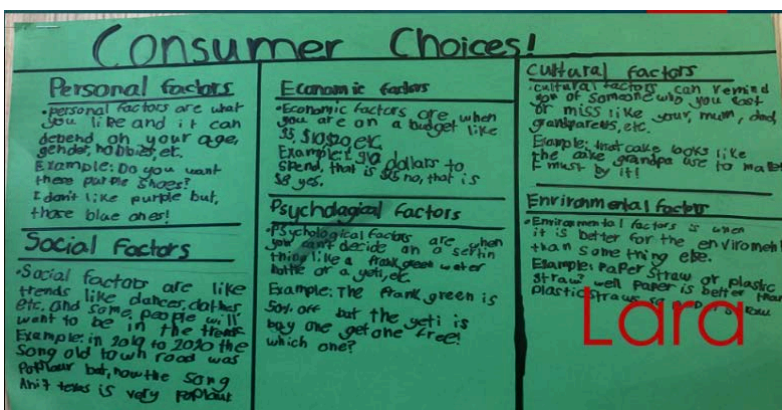 Consumer Choices!
Personal factors
•personal factors are what
you like and it can
depend on your age,
gender, hobbies, etc.
Example: Do you want
these purple shoes?
I don't like purple but,
those blue ones!
Social Factors
•Social factors are like
trends like dances, clothes
etc. and some people will
want to be in the
Example: in 2019 to 2020 the
song old town road was
Poplaur but, now the song
is very poplaur
Economic factors
•Economic factors are when
you are on a budget like
$5, $10, $20, etc.
Example: dollars to
spend, that is $15 no, that is
$8 yes.
Psychological Factors
•Psychological factors are when
you can't decide on a sertin
thing like a frank green water
bottle or a yeti, etc.
Example: The frank green is
50% off but the yeti is
buy one get one free!
which one?
Cultural factors
•cultural factors can remind
you of someone who you lost
or miss like your, mum, dad,
grandparents, etc.
Example: that cake looks like
the cake grandpa use to make
I must by it!
Environmental factors
•Environmental factors is when
it is better for the enviroment
than some thing else.
Example: Paper straw or plastic
straw? well paper is better than
plastic straws so
Lara